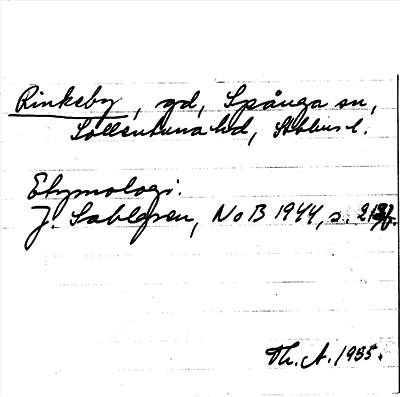 Rinkeby, gd, Spånga sn,
Sollentuna hd, Sthlms l.
Etymologi:
J. Sahlgren, NoB 1944, s.
Th. A. 1935.